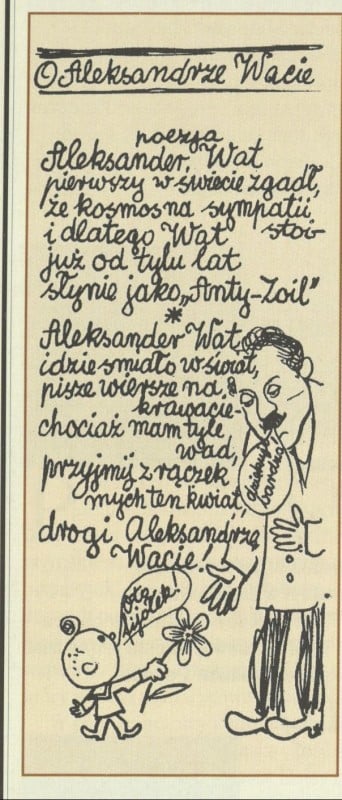 O Aleksandrze Wacie
poezja
Aleksander, Wat
pierwszy w świecie zgadł,
że kosmos na sympatii
stoi
i dlatego Wat
już od tylu lat
słynie jako „Anty-Zoil”
*
Aleksander Wat
idzie śmiało w świat,
pisze wiersze na
krawacie
chociaż mam tyle
wad,
przyjmij z rączek
mych ten kwiat,
drogi Aleksandrze
Wacie!
dziękuję
bardzo
oto
fijołek!